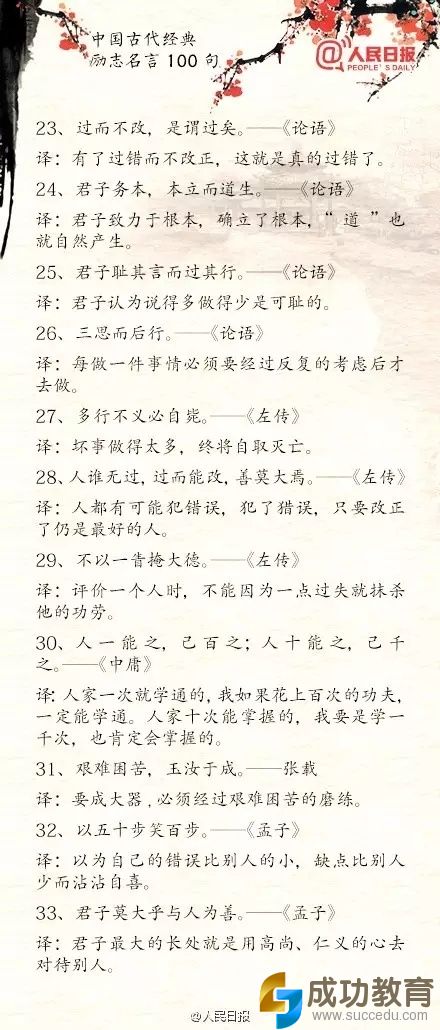 中国古代经典
励志名言 100 句
@人民日报
PEOPLE'S DAILY
23、过而不改，是谓过矣。——《论语》
译：有了过错而不改正，这就是真的过错了。
24、君子务本，本立而道生。——《论语》
译：君子致力于根本，确立了根本，“ 道 ”也
就自然产生。
25、君子耻其言而过其行。——《论语》
译：君子认为说得多做得少是可耻的。
26、三思而后行。——《论语》
译：每做一件事情必须要经过反复的考虑后才
去做。
27、多行不义必自毙。——《左传》
译：坏事做得太多，终将自取灭亡。
28、人谁无过，过而能改，善莫大焉。——《左传》
译：人都有可能犯错误，犯了猎误，只要改正
了仍是最好的人。
29、不以一眚掩大德。——《左传》
译：评价一个人时，不能因为一点过失就抹杀
他的功劳。
30、人一能之，己百之；人十能之，己千
之。——《中庸》
译：人家一次就学通的，我如果花上百次的功夫，
一定能学通。人家十次能掌握的，我要是学一
千次，也肯定会掌握的。
31、艰难困苦，玉汝于成。——张载
译：要成大器，必须经过艰难困苦的磨练。
32、以五十步笑百步。——《孟子》
译：以为自己的错误比别人的小，缺点比别人
少而沾沾自喜。
33、君子莫大乎与人为善。——《孟子》
译：君子最大的长处就是用高尚、仁义的心去
对待别人。
@人民日报
成功教育
www.succedu.com